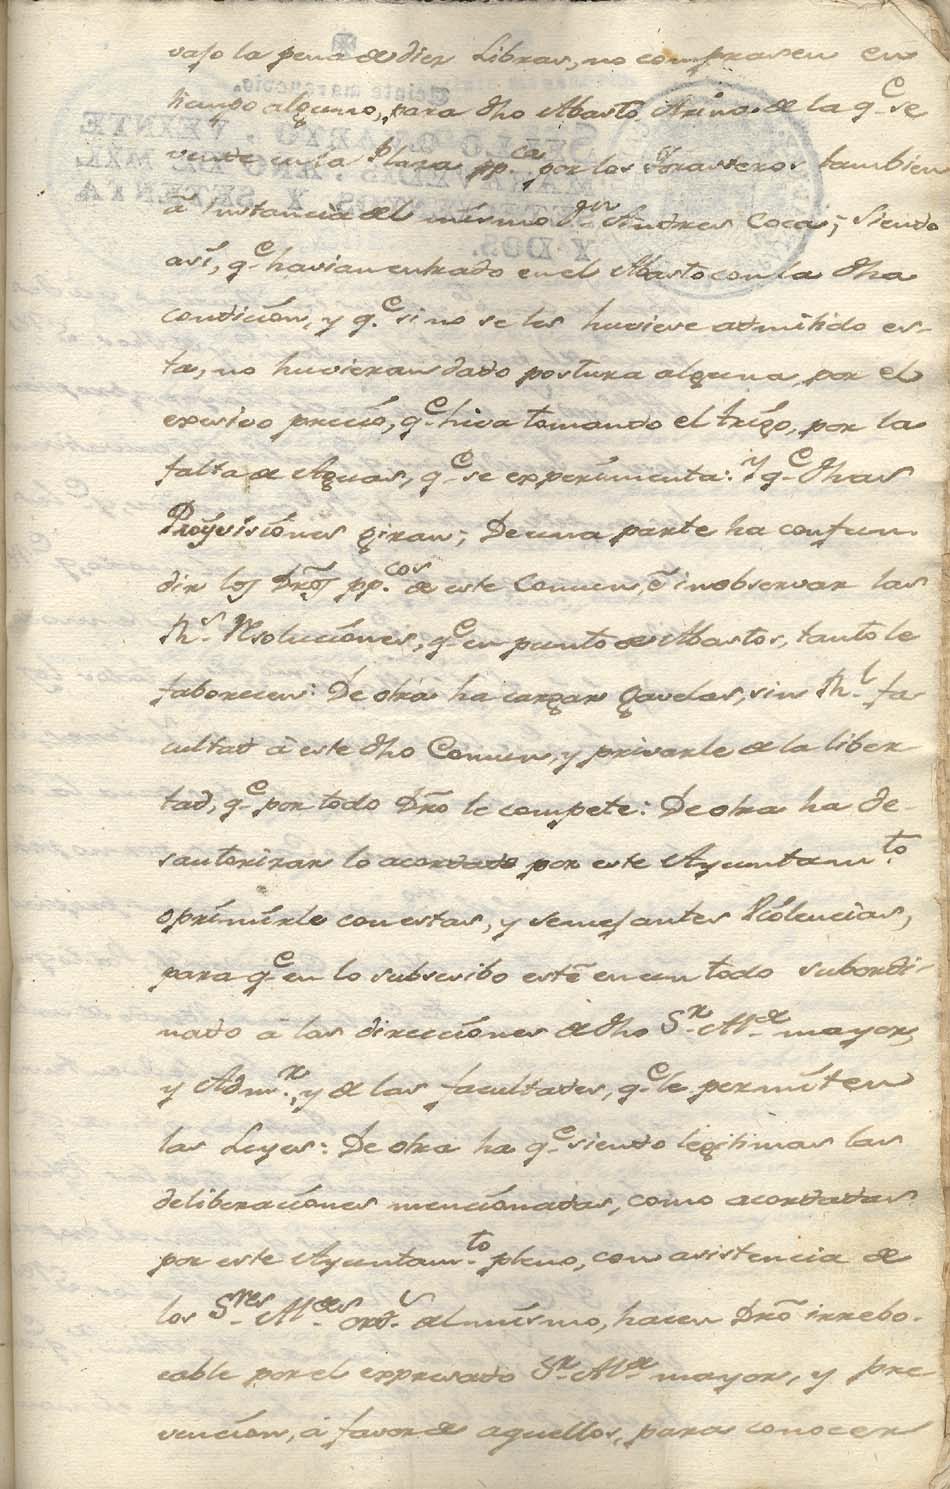 vajo la pena de diez Libras, no comprasen en
tiendo alguno, para dho Abasto Arina de la q.e se
vende en la Plaza pp.ca por los Forasteros tambien
â Instancia del mísmo D.n Andres Coca; Siendo
así, q.e havian entrado en el Abasto con la dha
condicíon, y q.e si no se les huviese admitido es-
ta, no huvieran dado postura alguna, por el
excesivo precío, q.e hiva tomando el trígo, por la
falta de Aguas, q.e se experímenta: Y q.e dhas
Provísíones giran; De una parte ha confun-
dir los Drõs pp.cos de este Comun, ê inobservar las
R.s Resolucíones, q.e en punto de Abastos, tanto le
faborecen: De otra ha cargar Gavelas, sin R.l fa-
cultad â este dho Comun, y privarle de la liber
tad, q.e por todo Drõ le compete: De otra ha de
sautorizar lo acordado por este Ayuntam.to
oprímírle con estas, y semejantes Víolencias,
para q.e en lo subscibo estẽ en un todo subordi-
nado â las direccíones de dho S.r Al.e mayor,
y Adm.r, y de las facultades, q.e le permíten
las Leyes: De otra ha q.e siendo legitimas las
deliberacíones mencíonadas, como acordadas
por este Ayuntam.to pleno, con asistencia de
los S.res Al.des ord.s del mísmo, hacen Drõ irrebo-
cable por el expresado S.r Al.e mayor, y pre-
vencíon, â favor de aquellos, para conocer
SELLO QUARTO, VEINTE
MARAVEDIS, AÑO DE MIL
SETECIENTOS Y SETENTA
Y DOS.